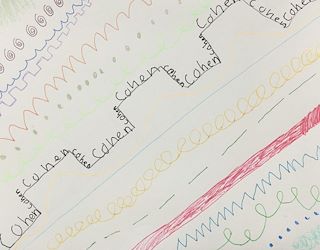 Cohen
Cohen
Cohen
cohen
Cohen
Cohen
Cohen
cohen
Cohen
Cohen
Cohen
Cohen
Cohen